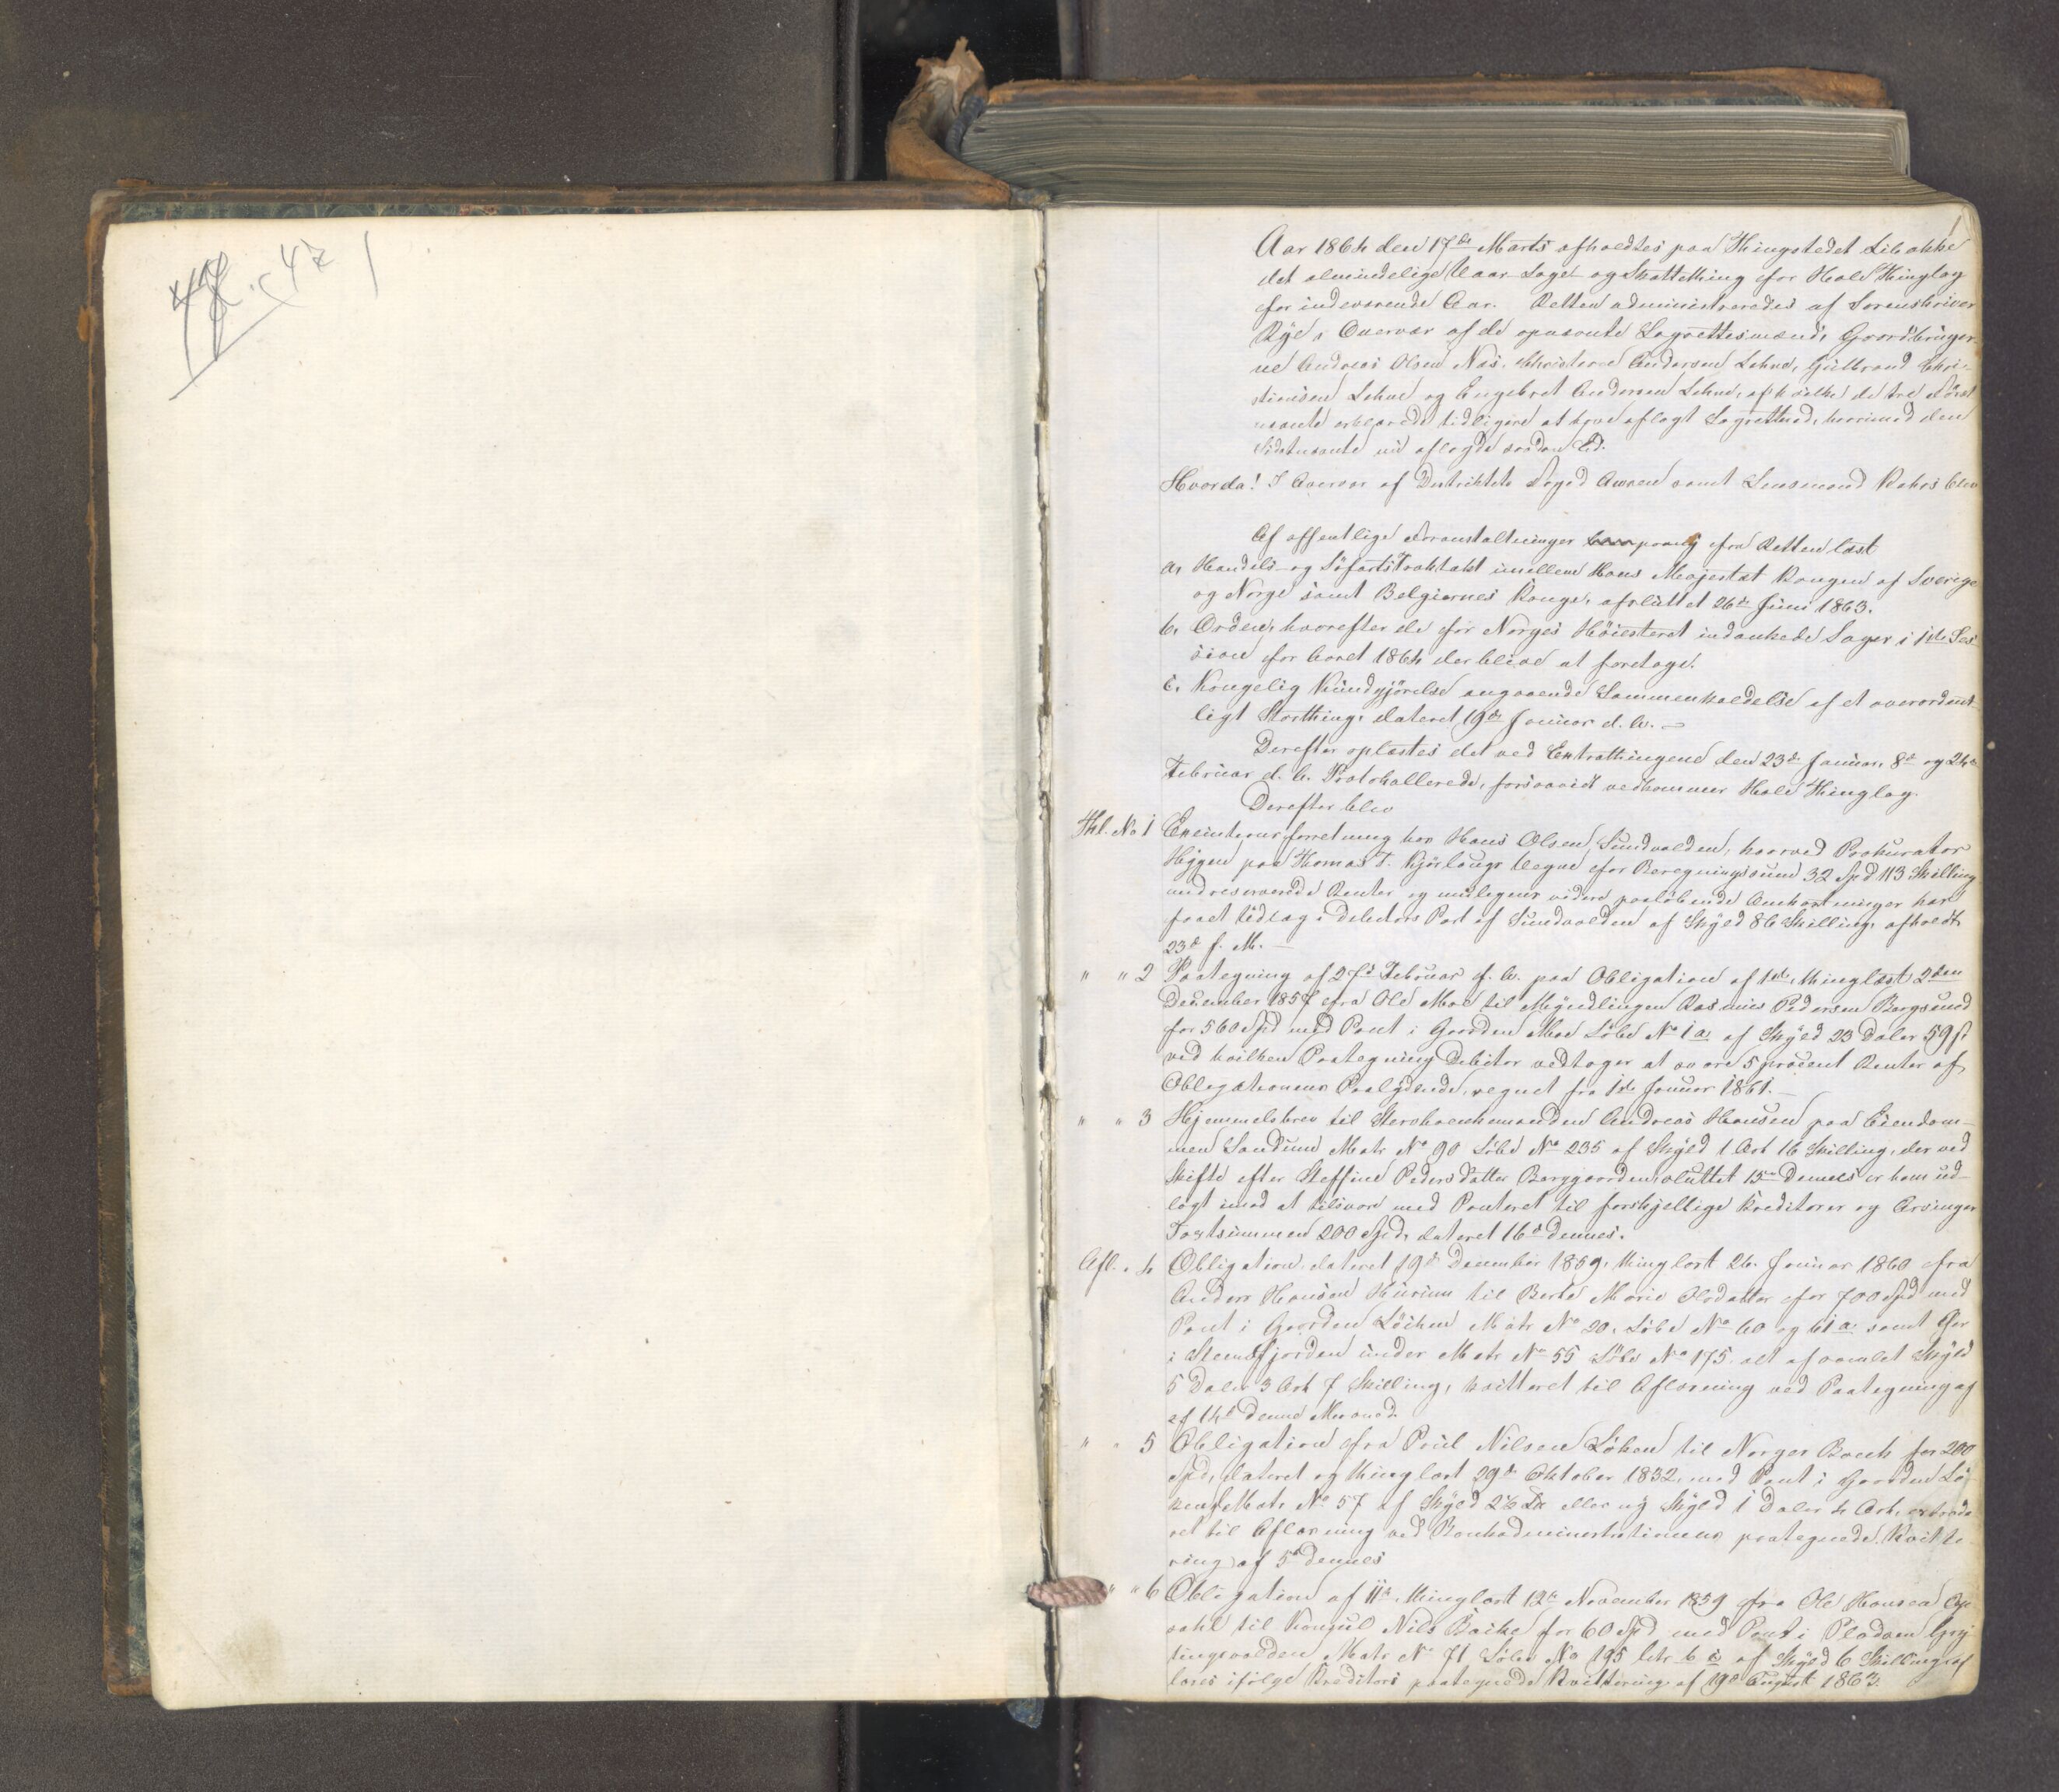 47 1
1
Aar 1864 den 17de Marts afholdtes paa Thingstedet Libakke
det almindelige Vaar- Sage- og Skattething for Hole Thinglag
for indeværende Aar. Retten administreredes af Sorenskriver
Rye, Overvær af de opnævnte Lagrettesmænd, Gaardbruger-
ne Andreas Olsen Næs, Christian Andersen Lehne, Gulbrand Chri-
stiansen Lehne og Engebret Andersen Lehne, af hvilke de tre Først
nævnte erklærede tidligere at have aflagt Lagretteed, hvorimod den
Sidstnævnte nu aflagde saadan Ed.
Hvorda! I Overvær af Distriktets Foged samt Lensmand blev
Af offentlige Foranstaltninger fra Retten læst
a, Handels- og Søfartstraktakt imellem Hans Majestæt Kongen af Sverige
og Norge samt Belgiernes Konge, afsluttet 26de Juni 1863.
b, Orden, hvorefter de for Norges Høiesteret indankede Sager i 1ste Ses-
sion for Aaret 1864 der blive at foretage.
c, Kongelig Kundgjørelse angaaende Sammenkaldelse af et overordent-
ligt Storthing, dateret 19de Januar d. A. –
Derefter oplæstes det ved Extrathingene den 23de Januar, 8de og 24de
Februar d. A. Protokollerede, forsaavidt vedkommer Hole Thinglag.
Derefter blev
Thl. No 1 Executionsforretning hos Hans Olsen Sundvolden, hvorved Prokurator
Hygen paa Thomas T. Vegne for Beregningssum 32 Spd 113 Skilling
med reserverede Renter og muligens videre paaløbende Omkostninger har
faaet Udlæg i Debitors Part af Sundvolden af Skyld 86 Skilling, afholdt
23de f. M. –
" " 2 Paategning af 27de Februar d. A. paa Obligation af 1ste, thinglæst 2den
December 1857 fra Ole Moe til Myndlingen Rasmus Pedersen Borgsund
for 560 Spd med Pant i Gaarden Moe Løbe No 1 a af Skyld 23 Daler 59 ſ
ved hvilken Paategning Debitor vedtager at svare 5 procent Renter af
Obligationens Paalydende, regnet fra 1ste Januar 1861. –
" " 3 Hjemmelsbrev til Enkemanden Andreas Hansen paa Eiendom-
men Sandum Matr No 90 Løbe No 235 af Skyld 1 Ort 16 Skilling, der ved
Skifte efter Steffine Pedersdatter Borggaarden, sluttet 15de Dennes er ham ud-
lagt imod at tilsvare med Panteret til forskjellige Kreditorer og Arvinger
Taxtsummen 200 Spd, dateret 16de Dennes.
Afl. " 4 Obligation, dateret 19de December 1859, thinglæst 26. Januar 1860 fra
Anders Hansen Hurum til Berte Marie Olsdatter for 700 Spd med
Pant i Gaarden Løiken Matr No 20, Løbe No 60 og 61 a samt
i Steensfjorden under Matr No 55 Løbe No 175. alt af samlet Skyld
5 Daler 3 Ort 7 Skilling, kvitteret til Aflæsning ved Paategning af
af 14de denne Maaned.
" " 5 Obligation fra Poul Nilsen Løken til Norges Bank for 200
Spd, dateret og thinglæst 29de Oktober 1832, med Pant i Gaarden Lø-
ken Matr No 57 af Skyld eller ny Skyld 1 Daler 4 Ort, extrade-
ret til Aflæsning ved Bankadministrationens paategnede Kvitte
ring af 5te Dennes
" " 6 Obligation af 11te, thinglæst 12te November 1859 fra Ole Hansen
til Konsul Nils Backe for 60 Spd med Pant i Pladsen
Matr No 71 Løbe No 195 litr b c af Skyld 6 Skilling, af
læses ifølge Kreditors paategnede Kvittering af 19de August 1863.